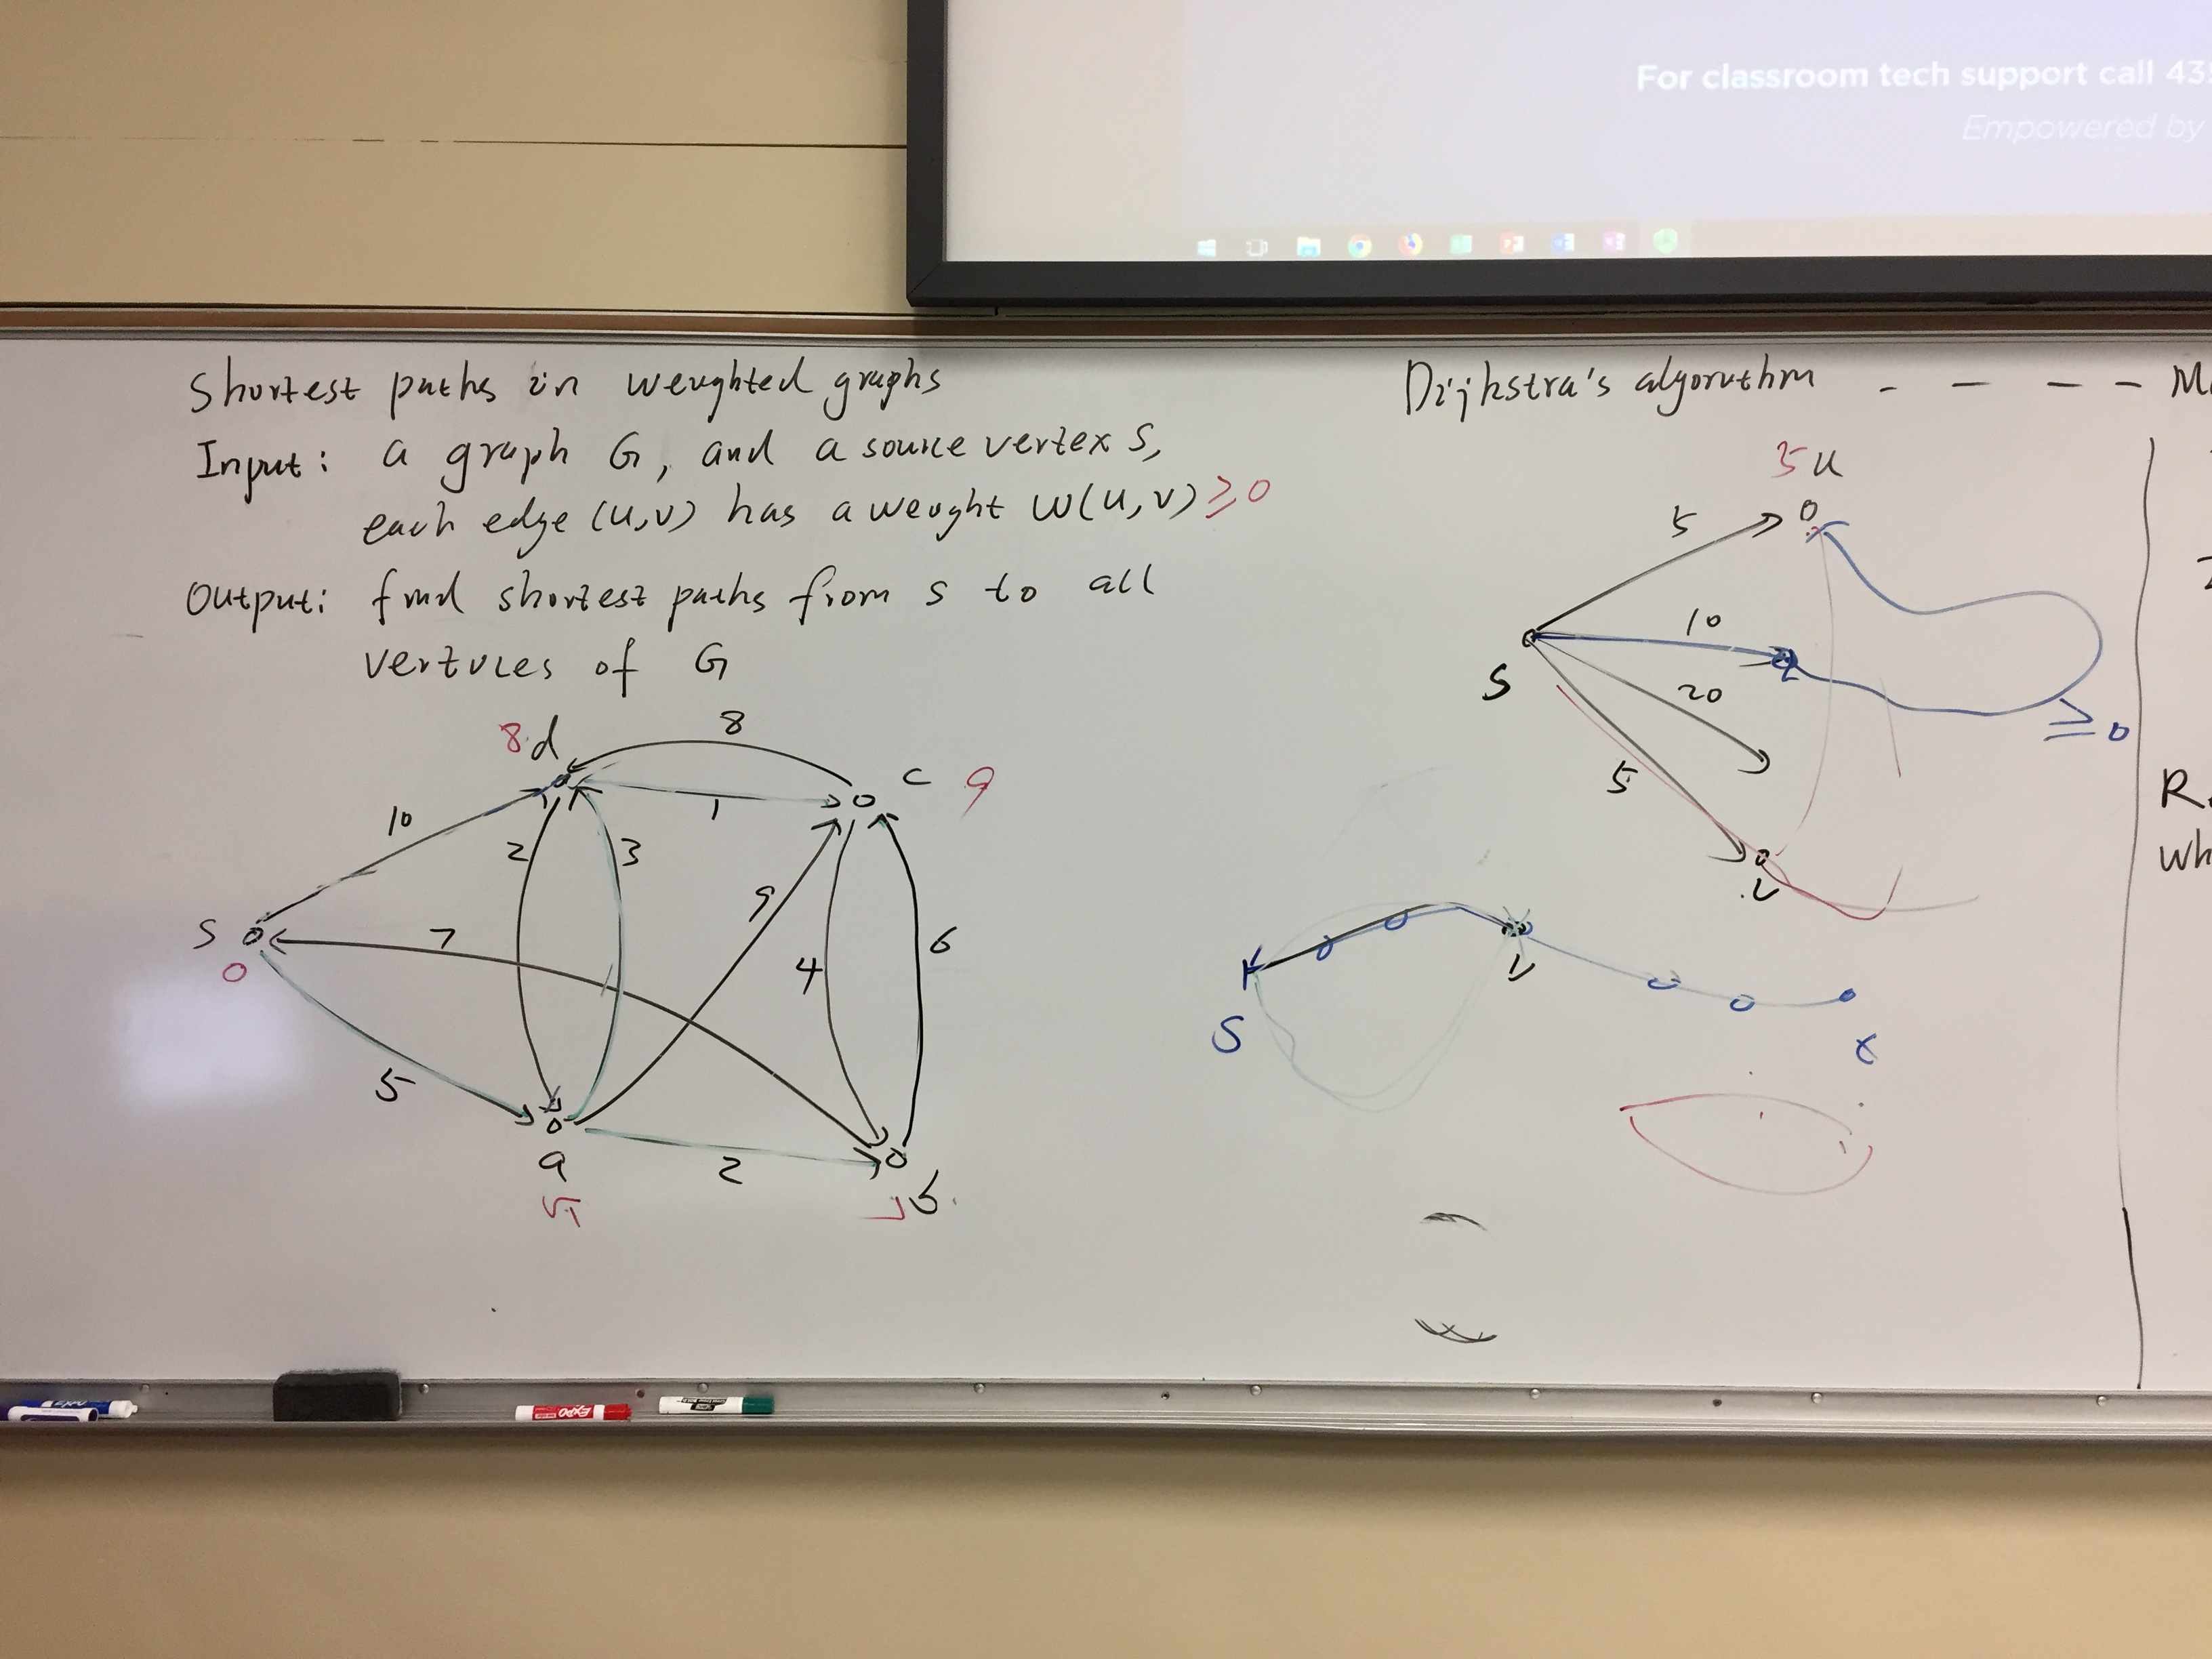 For classroom tech support call 43
Empowered by
Shortest paths in weighted graphs
Input: a graph G, and a source vertex s,
each edge (u,v) has a weight w(u,v) ≥0
Output: find shortest paths from s to all
vertices of G
8 d
8
c 9
10
1
2
3
9
S
0
7
4
6
5
a
5
2
7 b
Dijkstra's algorithm - - - -
5 u
5
10
S
20
≥0
5
v
S
v
EXPO
EXPO